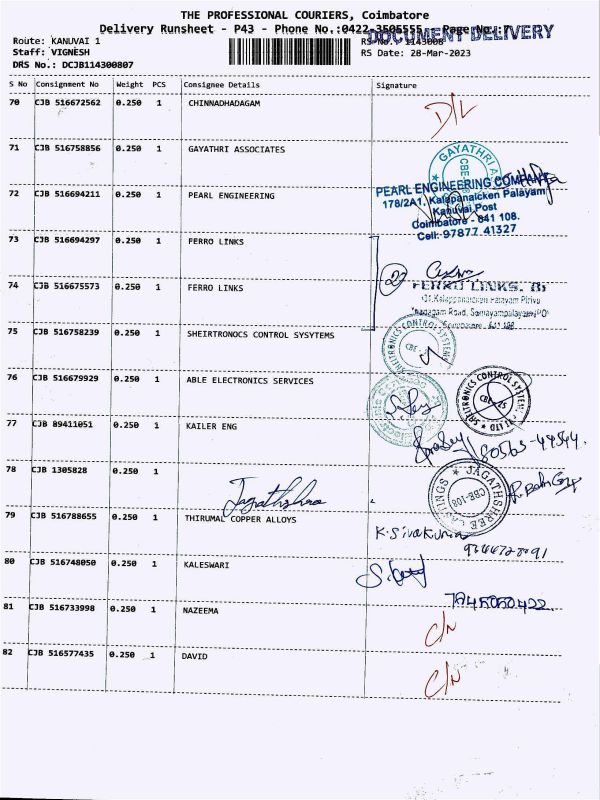 THE PROFESSIONAL COURIERS, Coimbatore
Delivery Runsheet - P43 - Phone No.:0422-3505555 Page No.: 7
DOCUMENT DELIVERY
Route: KANUVAI 1
RS No.: 1143008
Staff: VIGNESH
RS Date: 28-Mar-2023
DRS No.: DCJB114300807
S No Consignment No Weight PCS Consignee Details Signature
70 CJB 516672562 0.250 1 CHINNADHADAGAM D/L
71 CJB 516758856 0.250 1 GAYATHRI ASSOCIATES
GAYATHRI
PEARL ENGINEERING COMPANY
178/2A1, Kalapanaicken Palayam
72 CJB 516694211 0.250 1 PEARL ENGINEERING
Kanuvai Post
Coimbatore - 641 108.
Cell: 97877 41327
73 CJB 516694297 0.250 1 FERRO LINKS
2
74 CJB 516675573 0.250 1 FERRO LINKS
FERRO LINKS
75 CJB 516758239 0.250 1 SHEIRTRONOCS CONTROL SYSYTEMS
76 CJB 516679929 0.250 1 ABLE ELECTRONICS SERVICES
77 CJB 89411051 0.250 1 KAILER ENG
78 CJB 1305828 0.250 1
JAGATHSHREE CASTINGS
CBE-108
Jagathshree
79 CJB 516788655 0.250 1 THIRUMAL COPPER ALLOYS
K. Sivakumar
80 CJB 516748050 0.250 1 KALESWARI
81 CJB 516733998 0.250 1 NAZEEMA C/N
82 CJB 516577435 0.250 1 DAVID C/N